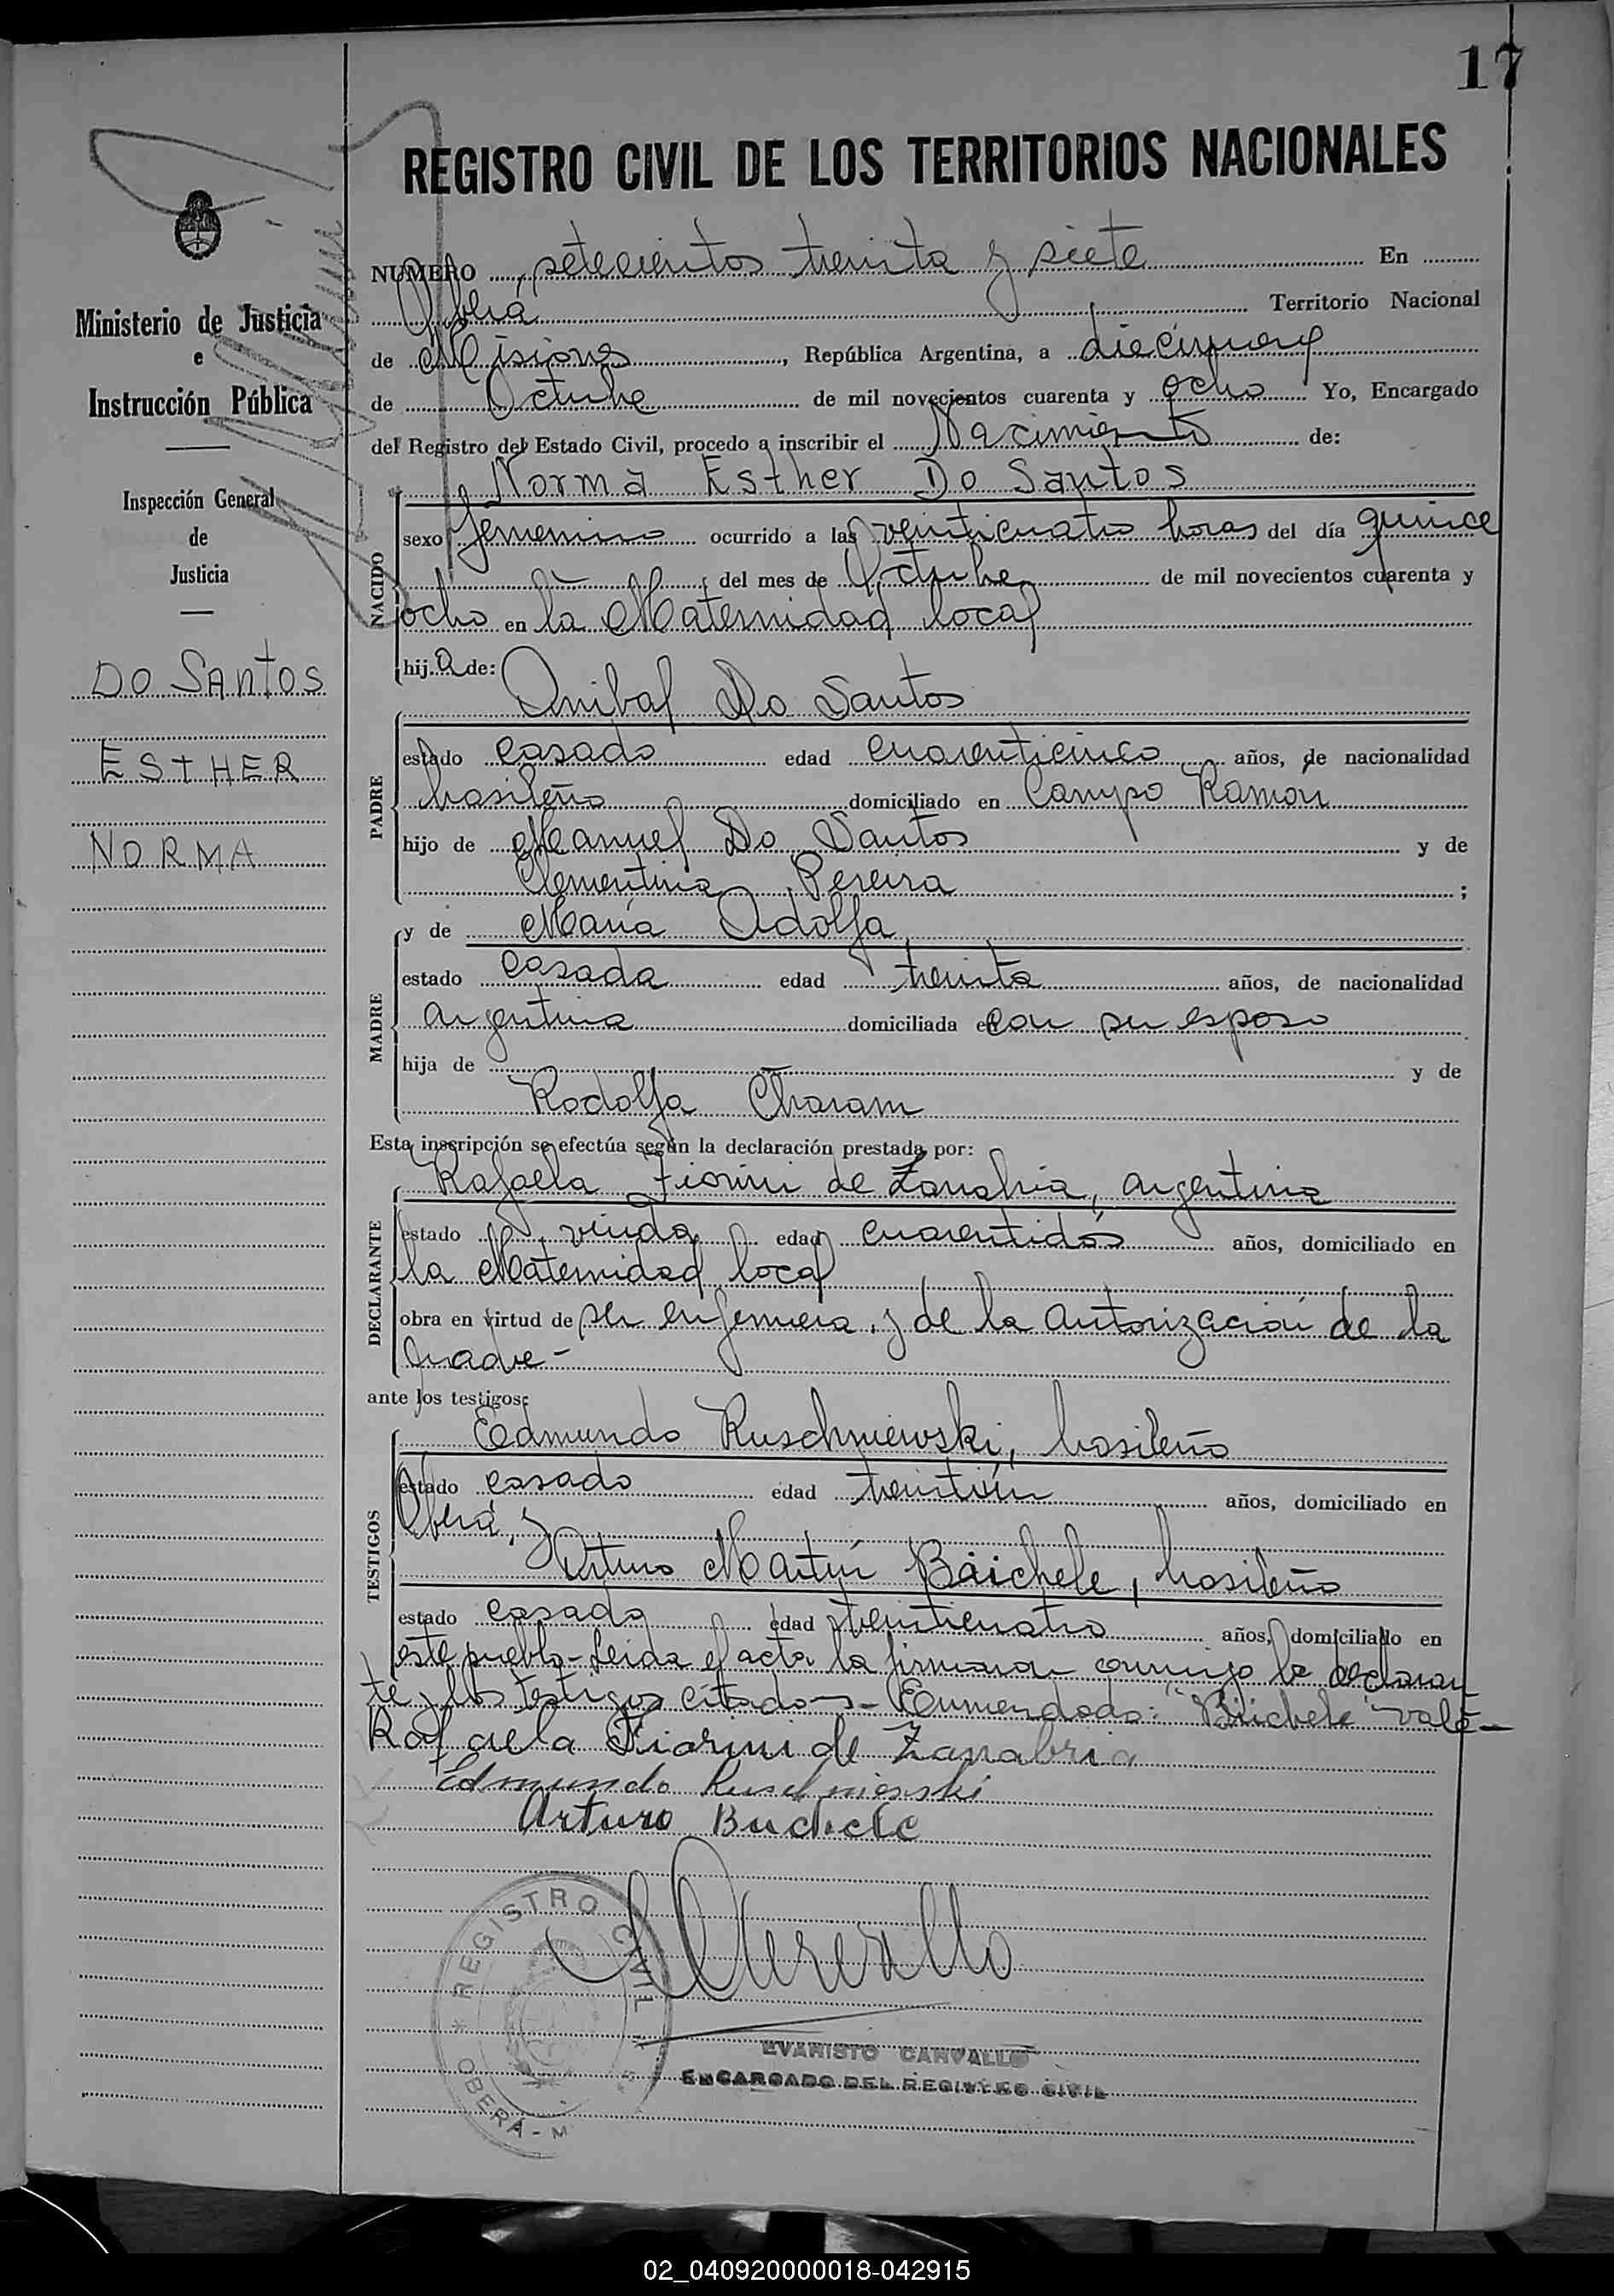 17
REGISTRO CIVIL DE LOS TERRITORIOS NACIONALES
Ministerio de Justicia
e
Instrucción Pública
Inspección General
de
Justicia
DO SANTOS
ESTHER
NORMA
NUMERO setecientos treinta y siete En
Oberá Territorio Nacional
de Misiones, República Argentina, a diecinueve
de Octubre de mil novecientos cuarenta y ocho Yo, Encargado
del Registro del Estado Civil, procedo a inscribir el Nacimiento de:
Norma Esther Do Santos
NACIDO
sexo femenino ocurrido a las veinticuatro horas del día quince
del mes de Octubre de mil novecientos cuarenta y
ocho en la Maternidad local
hija de:
Anibal Do Santos
PADRE
estado casado edad cuarenticinco años, de nacionalidad
brasileño domiciliado en Campo Ramon
hijo de Manuel Do Santos y de
Clementina Pereira ;
y de María Adolfa
MADRE
estado casada edad treinta años, de nacionalidad
argentina domiciliada en con su esposo
hija de y de
Rodolfa Charam
Esta inscripción se efectúa según la declaración prestada por:
Rafaela Fiorini de Zanabria, argentina
DECLARANTE
estado viuda edad cuarentidós años, domiciliado en
la Maternidad local
obra en virtud de ser enfermera y de la autorización de la
madre -
ante los testigos:
Edmundo Ruschniewski, brasileño
TESTIGOS
estado casado edad treintiún años, domiciliado en
Oberá, y
Arturo Martín Baichele, brasileño
estado casado edad treinticuatro años, domiciliado en
este pueblo - Leida el acta la firmaron conmigo la declaran
te y los testigos citados - Enmendado: "Bäichele" vale -
Rafaela Fiorini de Zanabria
Edmundo Ruschniewski
Arturo Buchele
REGISTRO CIVIL
OBERÁ - M
EVARISTO CARVALLO
ENCARGADO DEL REGISTRO CIVIL
02_040920000018-042915